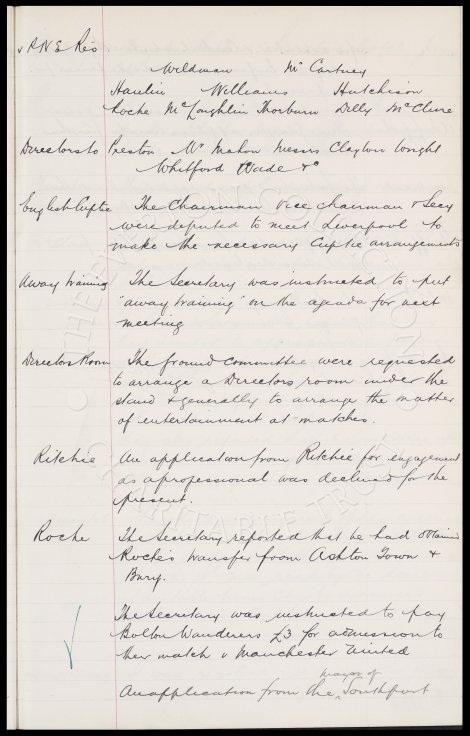 v P.N.E. Res
Wildman McCartney
Haulin Williams Hutchison
Roche McLoughlin Thorburn Dilly McClure
Directors to Preston Mr Mahon Messrs Clayton Wright
Whitford Wade &c
English Cuptie The Chairman Vice Chairman & Secy
were deputed to meet Liverpool to
make the necessary Cuptie arrangements
Away training The Secretary was instructed to put
"away training" on the agenda for next
meeting
Directors Room The Ground Committee were requested
to arrange a Directors room under the
stand & generally to arrange the matter
of entertainment at matches.
Ritchie An application from Ritchie for engagement
as a professional was declined for the
present.
Roche The Secretary reported that he had obtained
Roche's transfer from Ashton Town &
Bury.
The Secretary was instructed to pay
Bolton Wanderers £3 for admission to
their match v Manchester United
mayor of
An application from the Southport